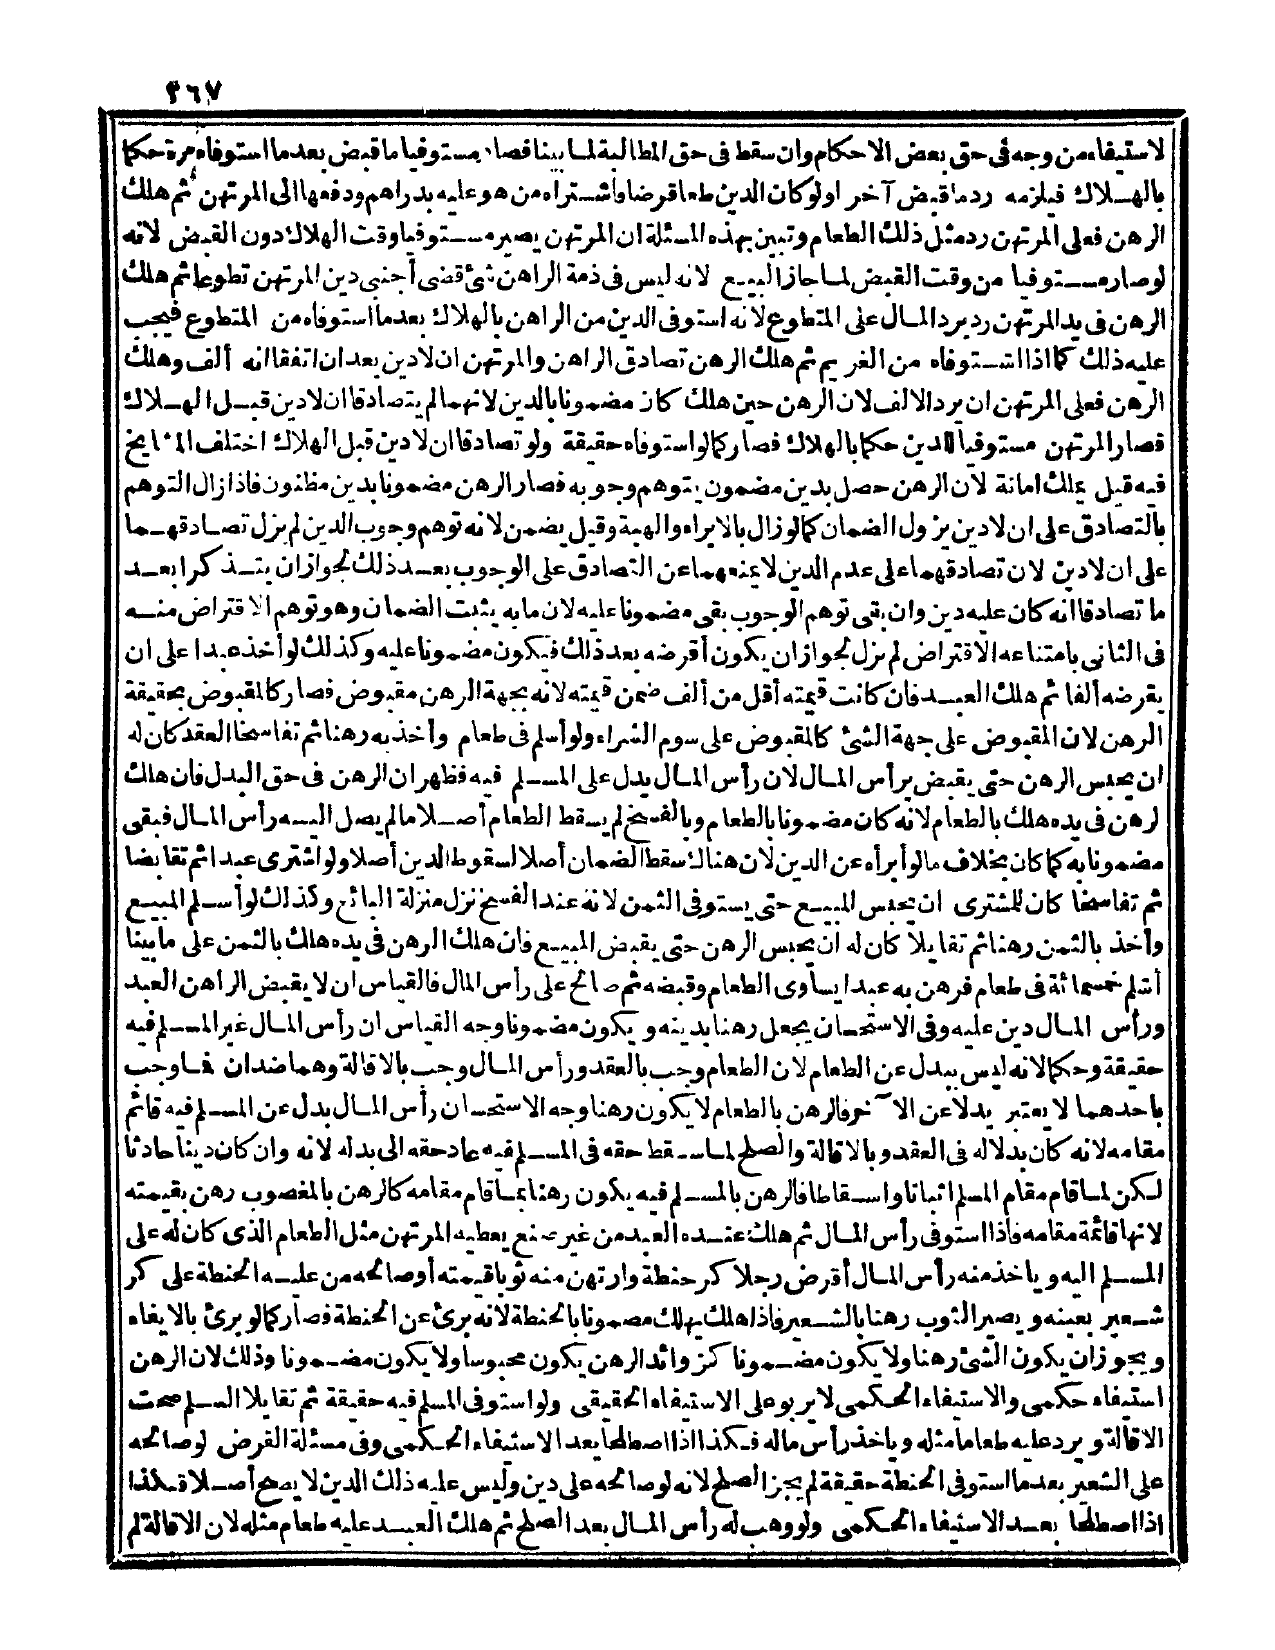 ٣٦٧
لاستيفاء من وجه فى حق بعض الاحكام وان سقط فى حق المطالبة لما بينا فصار مستوفيا ما قبض بعد ما استوفاه مرة حكما
بالهلاك فيلزمه رد ما قبض آخر اولو كان الدين طعاما قرضا فاشتراه من هو عليه بدراهم ودفعها الى المرتهن ثم هلك
الرهن فعلى المرتهن رد مثل ذلك الطعام وتبين بهذه المسئلة ان المرتهن يصير مستوفيا وقت الهلاك دون القبض لانه
لو صار مستوفيا من وقت القبض لما جاز البيع لانه ليس فى ذمة الراهن شئ قضى أجنبى دين المرتهن تطوعا ثم هلك
الرهن فى يد المرتهن رد يرد المال على المتطوع لانه استوفى الدين من الراهن بالهلاك بعد ما استوفاه من المتطوع فيجب
عليه ذلك كما اذا استوفاه من الغريم ثم هلك الرهن تصادق الراهن والمرتهن ان لا دين بعد ان اتفقا انه ألف وهلك
الرهن فعلى المرتهن ان يرد الالف لان الرهن حين هلك كان مضمونا بالدين لانهما لم يتصادقا ان لا دين قبل الهلاك
فصار المرتهن مستوفيا الدين حكما بالهلاك فصار كما لو استوفاه حقيقة ولو تصادقا ان لا دين قبل الهلاك اختلف المشايخ
فيه قيل يهلك امانة لان الرهن حصل بدين مضمون يتوهم وجوبه فصار الرهن مضمونا بدين مظنون فاذا زال التوهم
بالتصادق على ان لا دين يزول الضمان كما لو زال بالابراء والهبة وقيل يضمن لانه توهم وجوب الدين لم يزل تصادقهما
على ان لا دين لان تصادقهما على عدم الدين لا يمنعهما عن التصادق على الوجوب بعد ذلك لجواز ان يتذكرا بعد
ما تصادقا انه كان عليه دين وان بقى توهم الوجوب بقى مضمونا عليه لان ما به يثبت الضمان وهو توهم الاقتراض منه
فى الثانى بامتناعه الاقتراض لم يزل لجواز ان يكون أقرضه بعد ذلك فيكون مضمونا عليه وكذلك لو أخذ عبدا على ان
يقرضه ألفا ثم هلك العبد فان كانت قيمته أقل من ألف ضمن قيمته لانه بجهة الرهن مقبوض فصار كالمقبوض بحقيقة
الرهن لان المقبوض على جهة الشئ كالمقبوض على سوم الشراء ولو أسلم فى طعام وأخذ به رهنا ثم تفاسخا العقد كان له
ان يحبس الرهن حتى يقبض برأس المال لان رأس المال يدل على المسلم فيه فظهر ان الرهن فى حق البدل فان هلك
لرهن فى يده هلك بالطعام لانه كان مضمونا بالطعام وبالفسخ لم يسقط الطعام أصلا ما لم يصل اليه رأس المال فبقى
مضمونا به كما كان بخلاف ما لو أبرأه عن الدين لان هناك سقط الضمان أصلا لسقوط الدين أصلا ولو اشترى عبدا ثم تقابضا
ثم تفاسخا كان للمشترى ان يحبس المبيع حتى يستوفى الثمن لانه عند الفسخ نزل منزلة البائع وكذلك لو أسلم المبيع
وأخذ بالثمن رهنا ثم تقايلا كان له ان يحبس الرهن حتى يقبض المبيع فان هلك الرهن فى يده هلك بالثمن على ما بينا
أسلم خمسمائة فى طعام فرهن به عبدا يساوى الطعام وقبضه ثم صالح على رأس المال فالقياس ان لا يقبض الراهن العبد
ورأس المال دين عليه وفى الاستحسان يجعل رهنا بدينه ويكون مضمونا وجه القياس ان رأس المال غير المسلم فيه
حقيقة وحكما لانه ليس ببدل عن الطعام لان الطعام وجب بالعقد ورأس المال وجب بالاقالة وهما ضدان فما وجب
باحدهما لا يعتبر بدلا عن الآخر فالرهن بالطعام لا يكون رهنا وجه الاستحسان رأس المال بدل عن المسلم فيه قائم
مقامه لانه كان بدلا له فى العقد وبالاقالة والصلح لما سقط حقه فى المسلم فيه عاد حقه الى بدله لانه وان كان دينا حادثا
لكن لما قام مقام المسلم اثباتا واسقاطا فالرهن بالمسلم فيه يكون رهنا بما قام مقامه كالرهن بالمغصوب رهن بقيمته
لانها قائمة مقامه فاذا استوفى رأس المال ثم هلك عنده العبد من غير صنع يعطيه المرتهن مثل الطعام الذى كان له على
المسلم اليه ويأخذ منه رأس المال أقرض رجلا كر حنطة وارتهن منه ثوبا قيمته أو صالحه من عليه الحنطة على كر
شعير بعينه ويصير الثوب رهنا بالشعير فاذا هلك يهلك مضمونا بالحنطة لانه برئ عن الحنطة فصار كما لو برئ بالايفاء
ويجوز ان يكون الشئ رهنا ولا يكون مضمونا كزوائد الرهن يكون محبوسا ولا يكون مضمونا وذلك لان الرهن
استيفاء حكمى والاستيفاء الحكمى لا يربو على الاستيفاء الحقيقى ولو استوفى المسلم فيه حقيقة ثم تقايلا السلم صحت
الاقالة ويرد عليه طعاما مثله ويأخذ رأس ماله فكذا اذا اصطلحا بعد الاستيفاء الحكمى وفى مسئلة القرض لو صالحه
على الشعير بعد ما استوفى الحنطة حقيقة لم يجز الصلح لانه لو صالحه على دين وليس عليه ذلك الدين لا يصح أصلا فكذا
اذا اصطلحا بعد الاستيفاء الحكمى ولو وهب له رأس المال بعد الصلح ثم هلك العبد عليه طعام مثله لان الاقالة لم